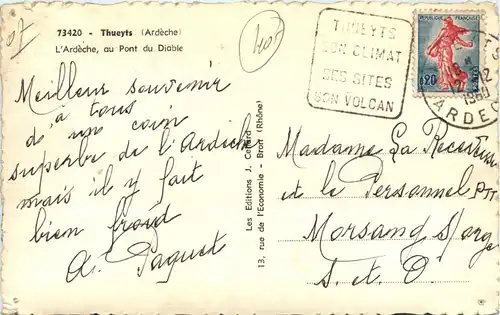 07
73420 - Thueyts (Ardèche)
L'Ardèche, au Pont du Diable
407
THUEYTS
SON CLIMAT
SES SITES
SON VOLCAN
REPUBLIQUE FRANÇAISE
0,20
12
1960
ARDE
Meilleur souvenir
à tous
d'un coin
superbe de l'Ardèch
mais il y fait
bien froid
A. Paquet
Les Editions J. Cellard
13, rue de l'Economie - Bron (Rhône)
Madame La Receveu
et le Personnel PTT
Morsang s/orge
S. et O.